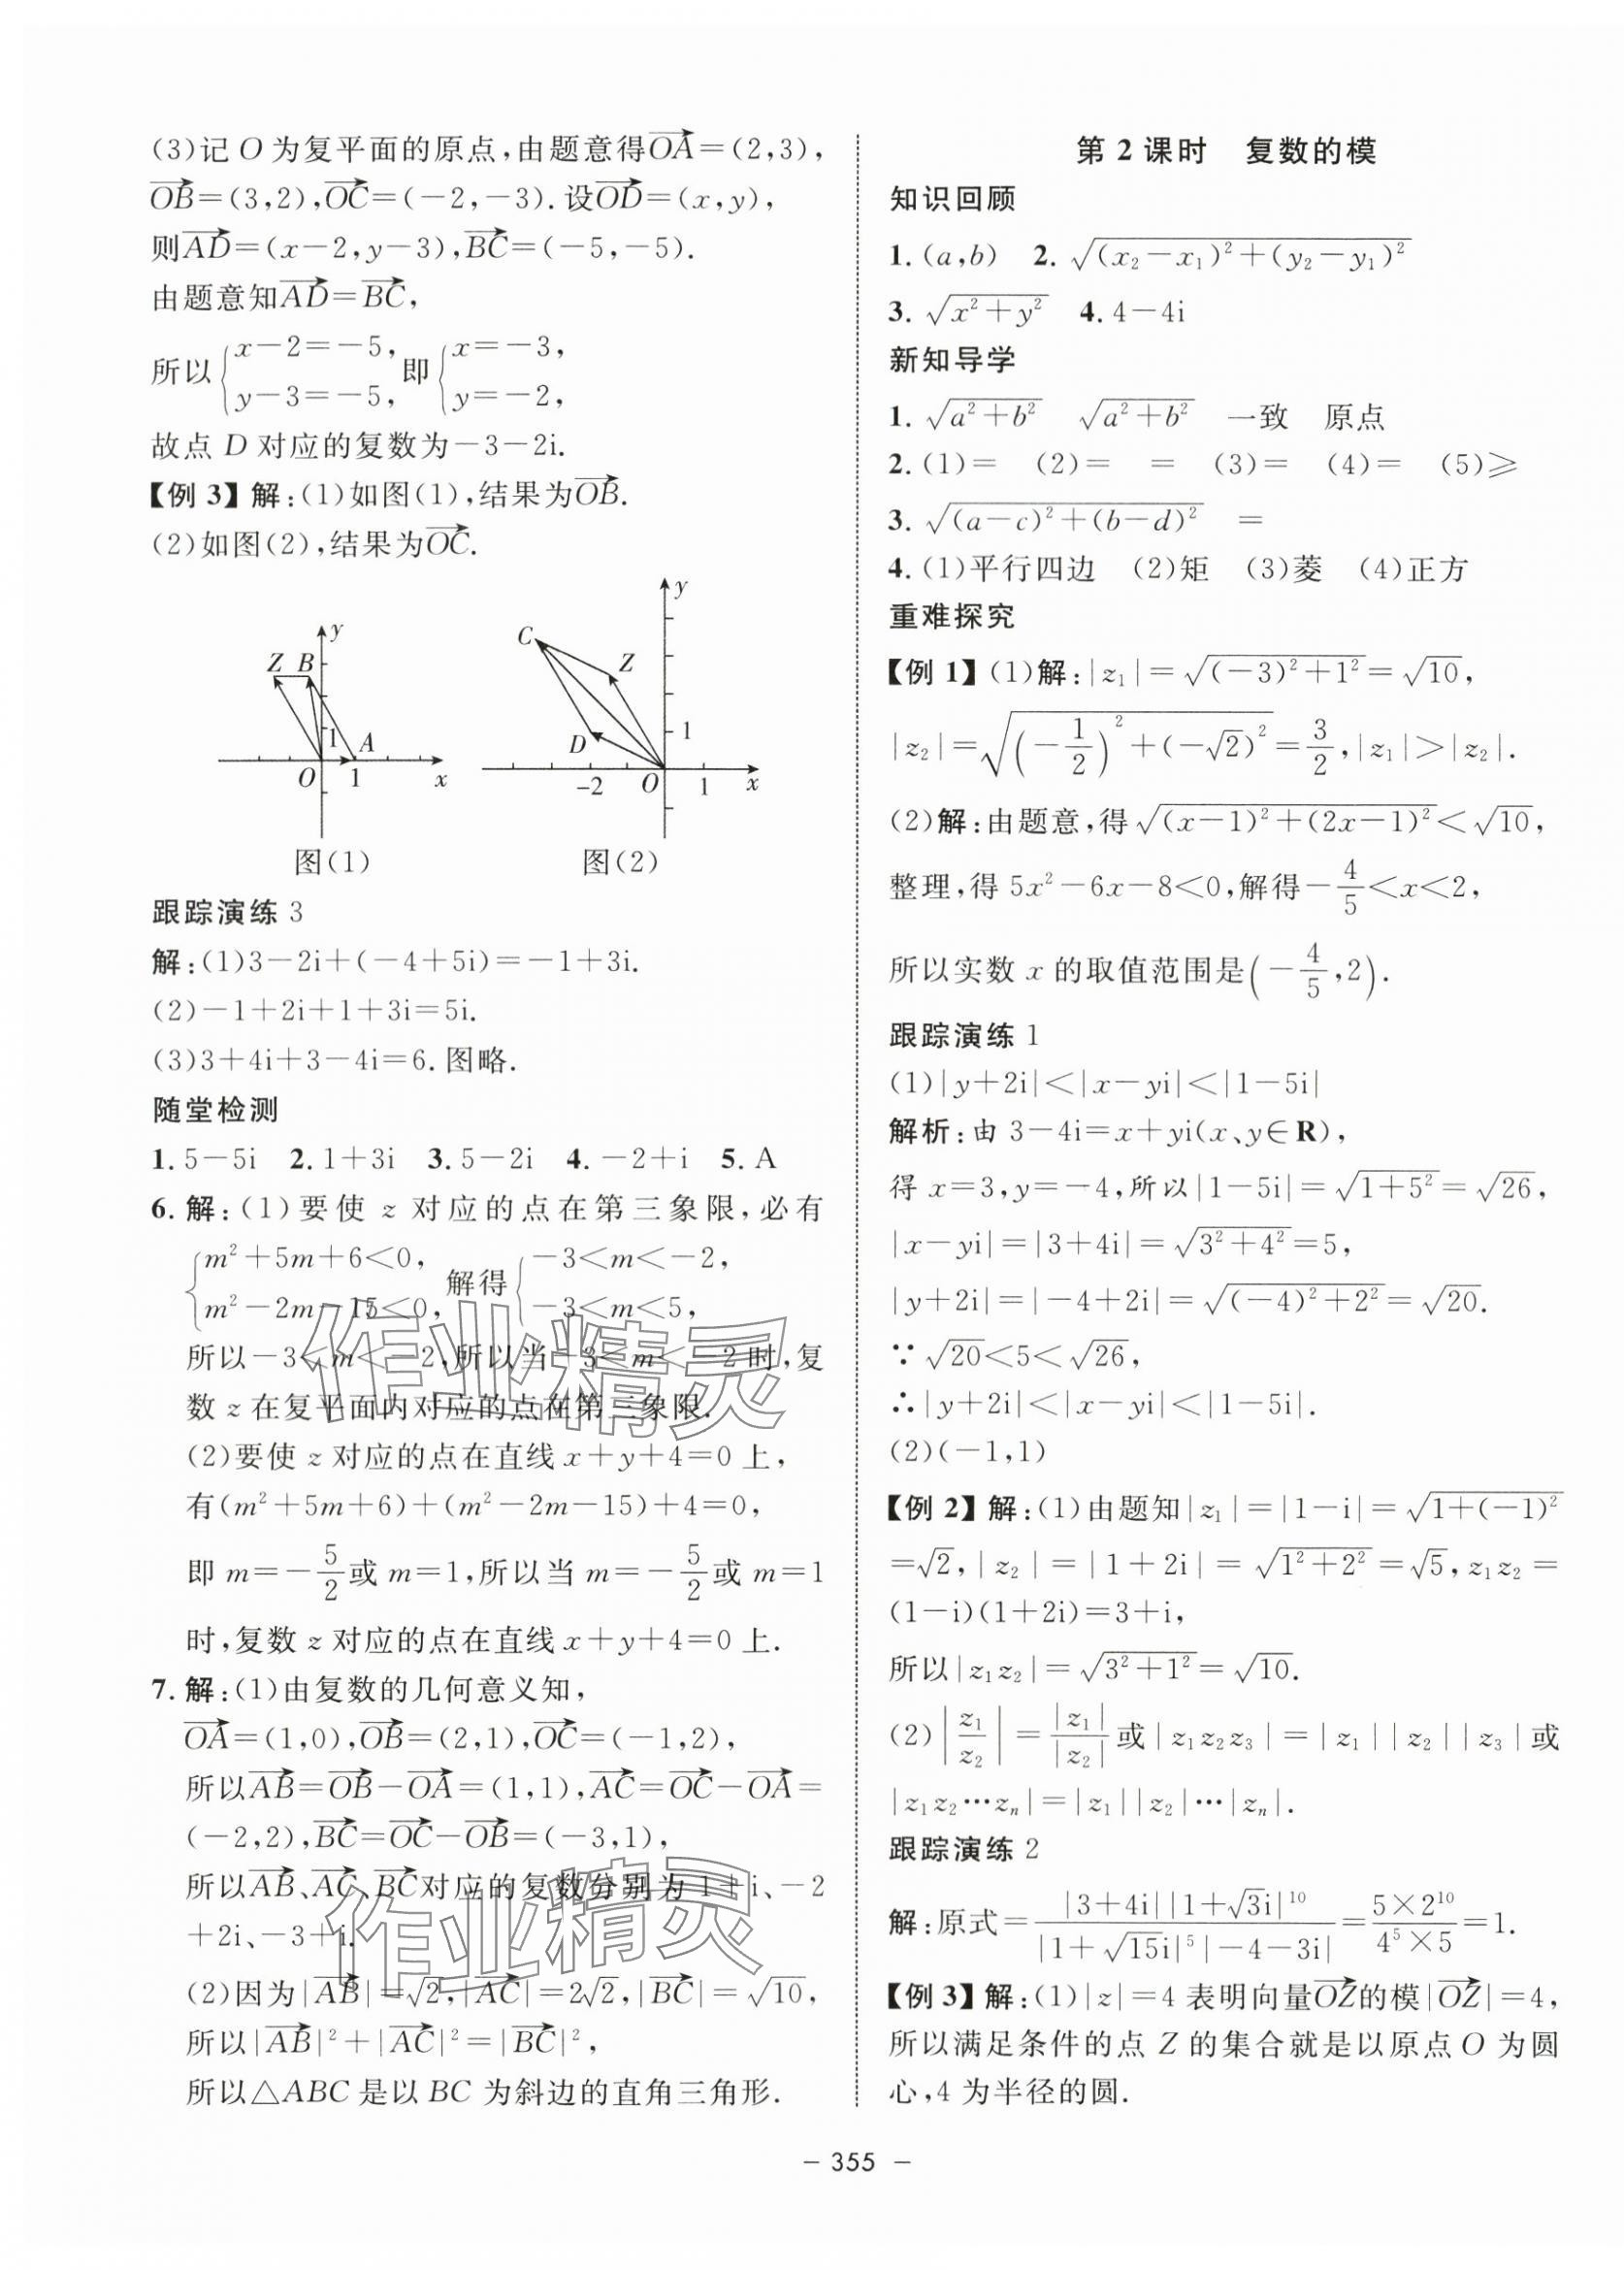 (3)记 O 为复平面的原点,由题意得$\overrightarrow{OA}$=(2,3),
$\overrightarrow{OB}$=(3,2),$\overrightarrow{OC}$=(-2,-3).设$\overrightarrow{OD}$=(x,y),
则$\overrightarrow{AD}$=(x-2,y-3),$\overrightarrow{BC}$=(-5,-5).
由题意知$\overrightarrow{AD}$=$\overrightarrow{BC}$,
所以$\begin{cases}x-2=-5,\\y-3=-5,\end{cases}$即$\begin{cases}x=-3,\\y=-2,\end{cases}$
故点 D 对应的复数为-3-2i.
【例 3】解:(1)如图(1),结果为$\overrightarrow{OB}$.
(2)如图(2),结果为$\overrightarrow{OC}$.
y
Z B
1 A
O 1 x
图(1)
y
C
Z
D 1
-2 O 1 x
图(2)
跟踪演练 3
解:(1)3-2i+(-4+5i)=-1+3i.
(2)-1+2i+1+3i=5i.
(3)3+4i+3-4i=6.图略.
随堂检测
1. 5-5i 2. 1+3i 3. 5-2i 4. -2+i 5. A
6. 解:(1)要使 z 对应的点在第三象限,必有
$\begin{cases}m^2+5m+6<0,\\m^2-2m-15<0,\end{cases}$解得$\begin{cases}-3<m<-2,\\-3<m<5,\end{cases}$
所以-3<m<-2,所以当-3<m<-2时,复
数 z 在复平面内对应的点在第三象限.
(2)要使 z 对应的点在直线 x+y+4=0 上,
有$(m^2+5m+6)+(m^2-2m-15)+4=0$,
即 $m=-\frac{5}{2}$或 m=1,所以当 $m=-\frac{5}{2}$或 m=1
时,复数 z 对应的点在直线 x+y+4=0 上.
7. 解:(1)由复数的几何意义知,
$\overrightarrow{OA}$=(1,0),$\overrightarrow{OB}$=(2,1),$\overrightarrow{OC}$=(-1,2),
所以$\overrightarrow{AB}$=$\overrightarrow{OB}$-$\overrightarrow{OA}$=(1,1),$\overrightarrow{AC}$=$\overrightarrow{OC}$-$\overrightarrow{OA}$=
(-2,2),$\overrightarrow{BC}$=$\overrightarrow{OC}$-$\overrightarrow{OB}$=(-3,1),
所以$\overrightarrow{AB}$、$\overrightarrow{AC}$、$\overrightarrow{BC}$对应的复数分别为 1+i、-2
+2i、-3+i.
(2)因为$|\overrightarrow{AB}|=\sqrt{2}$,$|\overrightarrow{AC}|=2\sqrt{2}$,$|\overrightarrow{BC}|=\sqrt{10}$,
所以$|\overrightarrow{AB}|^2+|\overrightarrow{AC}|^2=|\overrightarrow{BC}|^2$,
所以△ABC 是以 BC 为斜边的直角三角形.
第 2 课时 复数的模
知识回顾
1. (a,b) 2. $\sqrt{(x_2-x_1)^2+(y_2-y_1)^2}$
3. $\sqrt{x^2+y^2}$ 4. 4-4i
新知导学
1. $\sqrt{a^2+b^2}$ $\sqrt{a^2+b^2}$ 一致 原点
2. (1)= (2)= = (3)= (4)= (5)≥
3. $\sqrt{(a-c)^2+(b-d)^2}$ =
4. (1)平行四边 (2)矩 (3)菱 (4)正方
重难探究
【例 1】(1)解:$|z_1|=\sqrt{(-3)^2+1^2}=\sqrt{10}$,
$|z_2|=\sqrt{\left(-\frac{1}{2}\right)^2+(-\sqrt{2})^2}=\frac{3}{2}$,$|z_1|>|z_2|$.
(2)解:由题意,得$\sqrt{(x-1)^2+(2x-1)^2}<\sqrt{10}$,
整理,得 $5x^2-6x-8<0$,解得$-\frac{4}{5}<x<2$,
所以实数 x 的取值范围是$\left(-\frac{4}{5},2\right)$.
跟踪演练 1
(1)|y+2i|<|x-yi|<|1-5i|
解析:由 3-4i=x+yi(x、y∈R),
得 x=3,y=-4,所以$|1-5i|=\sqrt{1+5^2}=\sqrt{26}$,
$|x-yi|=|3+4i|=\sqrt{3^2+4^2}=5$,
$|y+2i|=|-4+2i|=\sqrt{(-4)^2+2^2}=\sqrt{20}$.
∵$\sqrt{20}<5<\sqrt{26}$,
∴|y+2i|<|x-yi|<|1-5i|.
(2)(-1,1)
【例 2】解:(1)由题知$|z_1|=|1-i|=\sqrt{1+(-1)^2}$
$=\sqrt{2}$,$|z_2|=|1+2i|=\sqrt{1^2+2^2}=\sqrt{5}$,$z_1z_2=$
(1-i)(1+2i)=3+i,
所以$|z_1z_2|=\sqrt{3^2+1^2}=\sqrt{10}$.
(2)$\left|\frac{z_1}{z_2}\right|=\frac{|z_1|}{|z_2|}$或$|z_1z_2z_3|=|z_1||z_2||z_3|$或
$|z_1z_2\cdots z_n|=|z_1||z_2|\cdots|z_n|$.
跟踪演练 2
解:原式$=\frac{|3+4i||1+\sqrt{3}i|^{10}}{|1+\sqrt{15}i|^5|-4-3i|}=\frac{5\times2^{10}}{4^5\times5}=1$.
【例 3】解:(1)|z|=4 表明向量$\overrightarrow{OZ}$的模$|\overrightarrow{OZ}|=4$,
所以满足条件的点 Z 的集合就是以原点 O 为圆
心,4 为半径的圆.
– 355 –
作业精灵
作业精灵